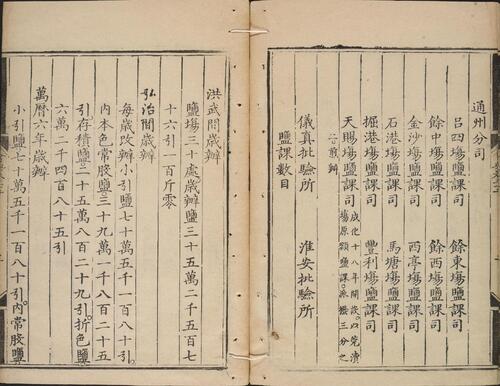 通州分司
呂四塲鹽課司 餘東塲鹽課司
餘中塲鹽課司 餘西塲鹽課司
金沙塲鹽課司 西亭塲鹽課司
石港塲鹽課司 馬塘塲鹽課司
掘港塲鹽課司 豐利塲鹽課司
天賜塲鹽課司 成化十八年開設以兊瀆
塲原額鹽課派撥三分之
煎辦
儀真批驗所 淮安批驗所
鹽課數目
洪武間歲辦
鹽塲三十處歲辦鹽三十五萬二千五百七
十六引一百斤零
弘治間歲辦
每歲改辦小引鹽七十萬五千一百八十引
內本色常股鹽三十九萬一千八百二十五
引存積鹽三十五萬八百二十九引折色鹽
六萬二千四百八十五引
萬曆六年歲辦
小引鹽七十萬五千一百八十引內常股鹽